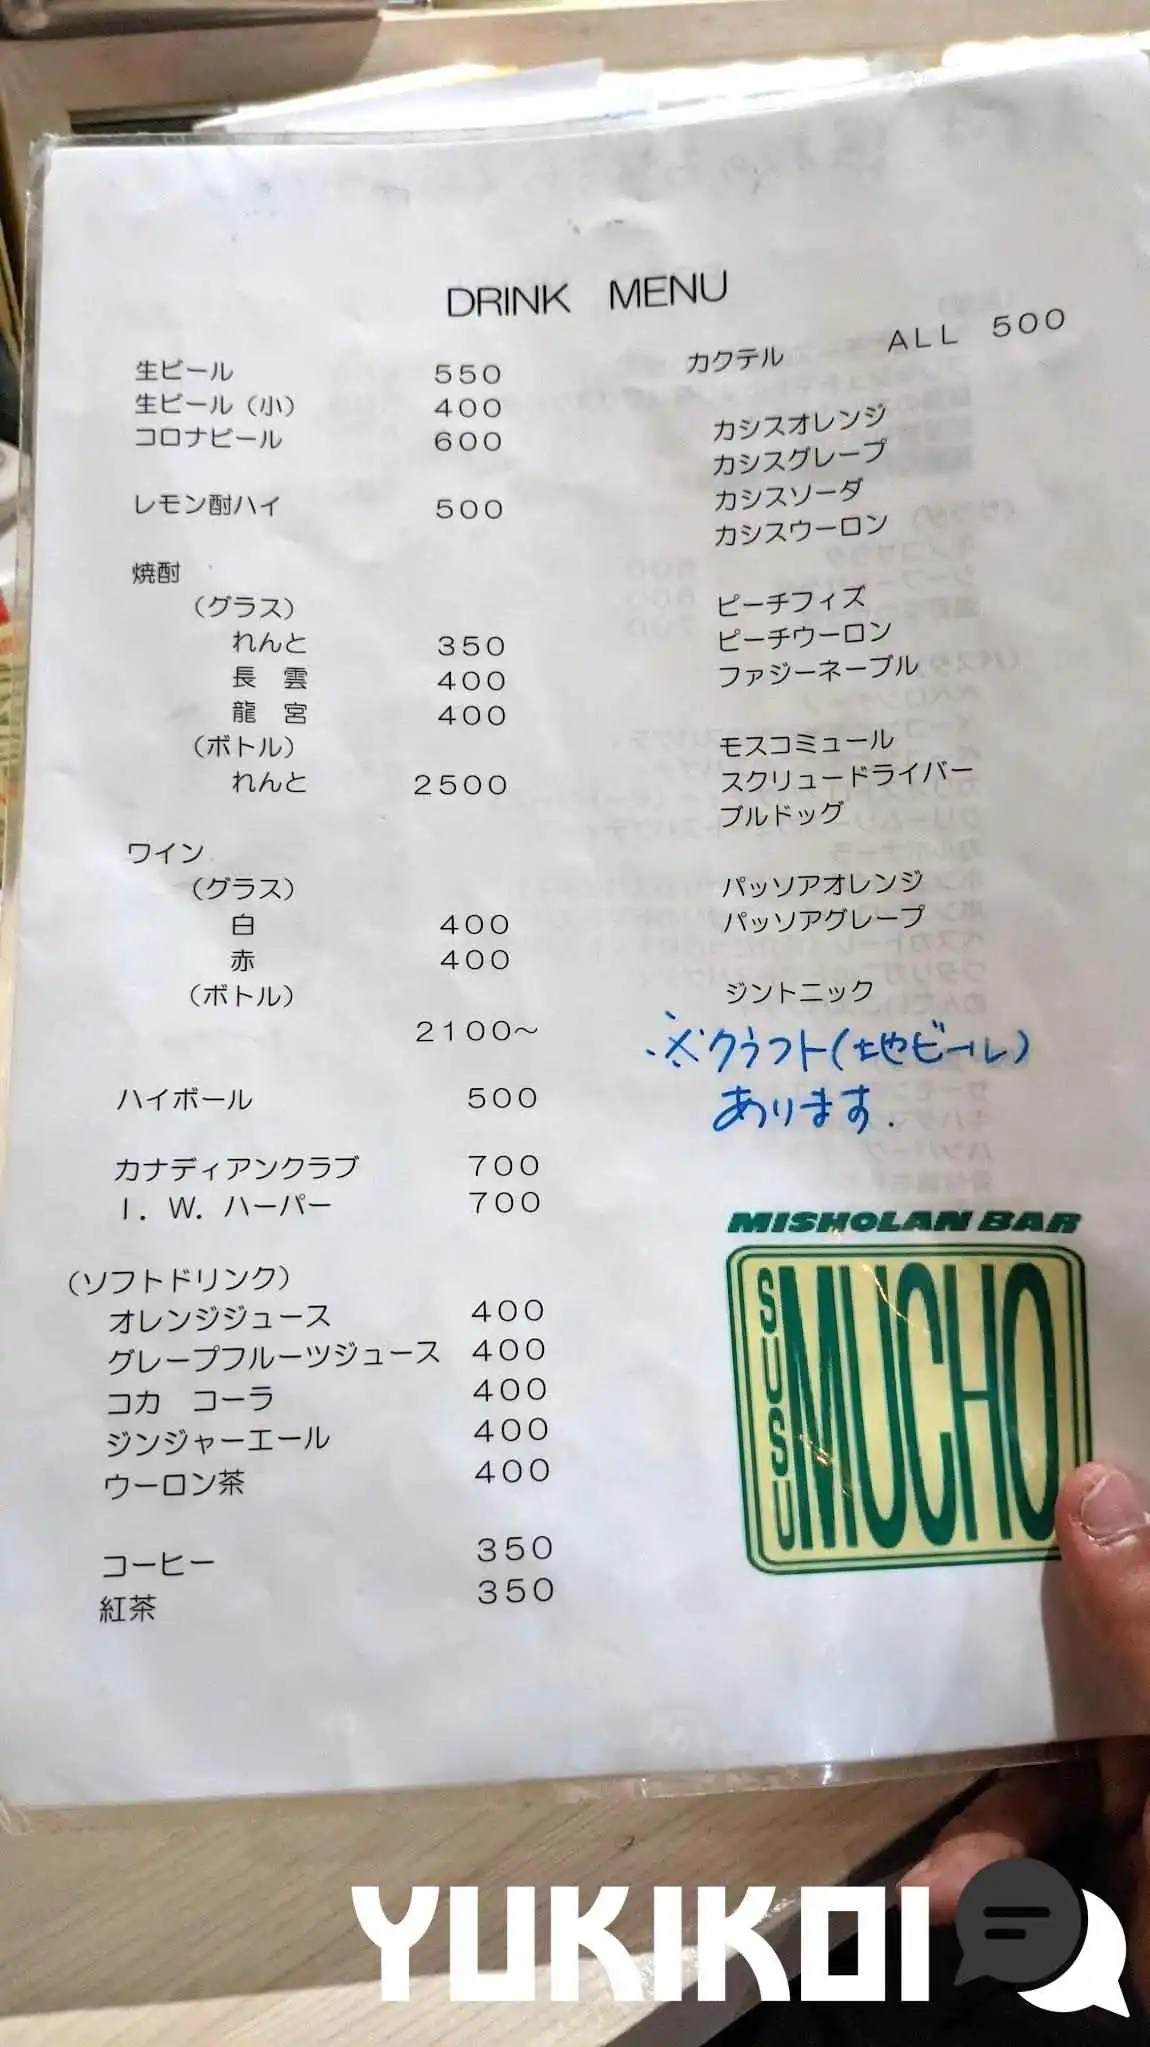 DRINK MENU
生ビール 550
生ビール（小） 400
コロナビール 600
レモン酎ハイ 500
焼酎
（グラス）
れんと 350
長 雲 400
龍 宮 400
（ボトル）
れんと 2500
ワイン
（グラス）
白 400
赤 400
（ボトル）
2100～
ハイボール 500
カナディアンクラブ 700
I. W. ハーパー 700
（ソフトドリンク）
オレンジジュース 400
グレープフルーツジュース 400
コカ コーラ 400
ジンジャーエール 400
ウーロン茶 400
コーヒー 350
紅茶 350
カクテル ALL 500
カシスオレンジ
カシスグレープ
カシスソーダ
カシスウーロン
ピーチフィズ
ピーチウーロン
ファジーネーブル
モスコミュール
スクリュードライバー
ブルドッグ
パッソアオレンジ
パッソアグレープ
ジントニック
※クラフト(地ビール)
あります.
MISHOLAN BAR
SUSU
MUCHO
YUKIKOI